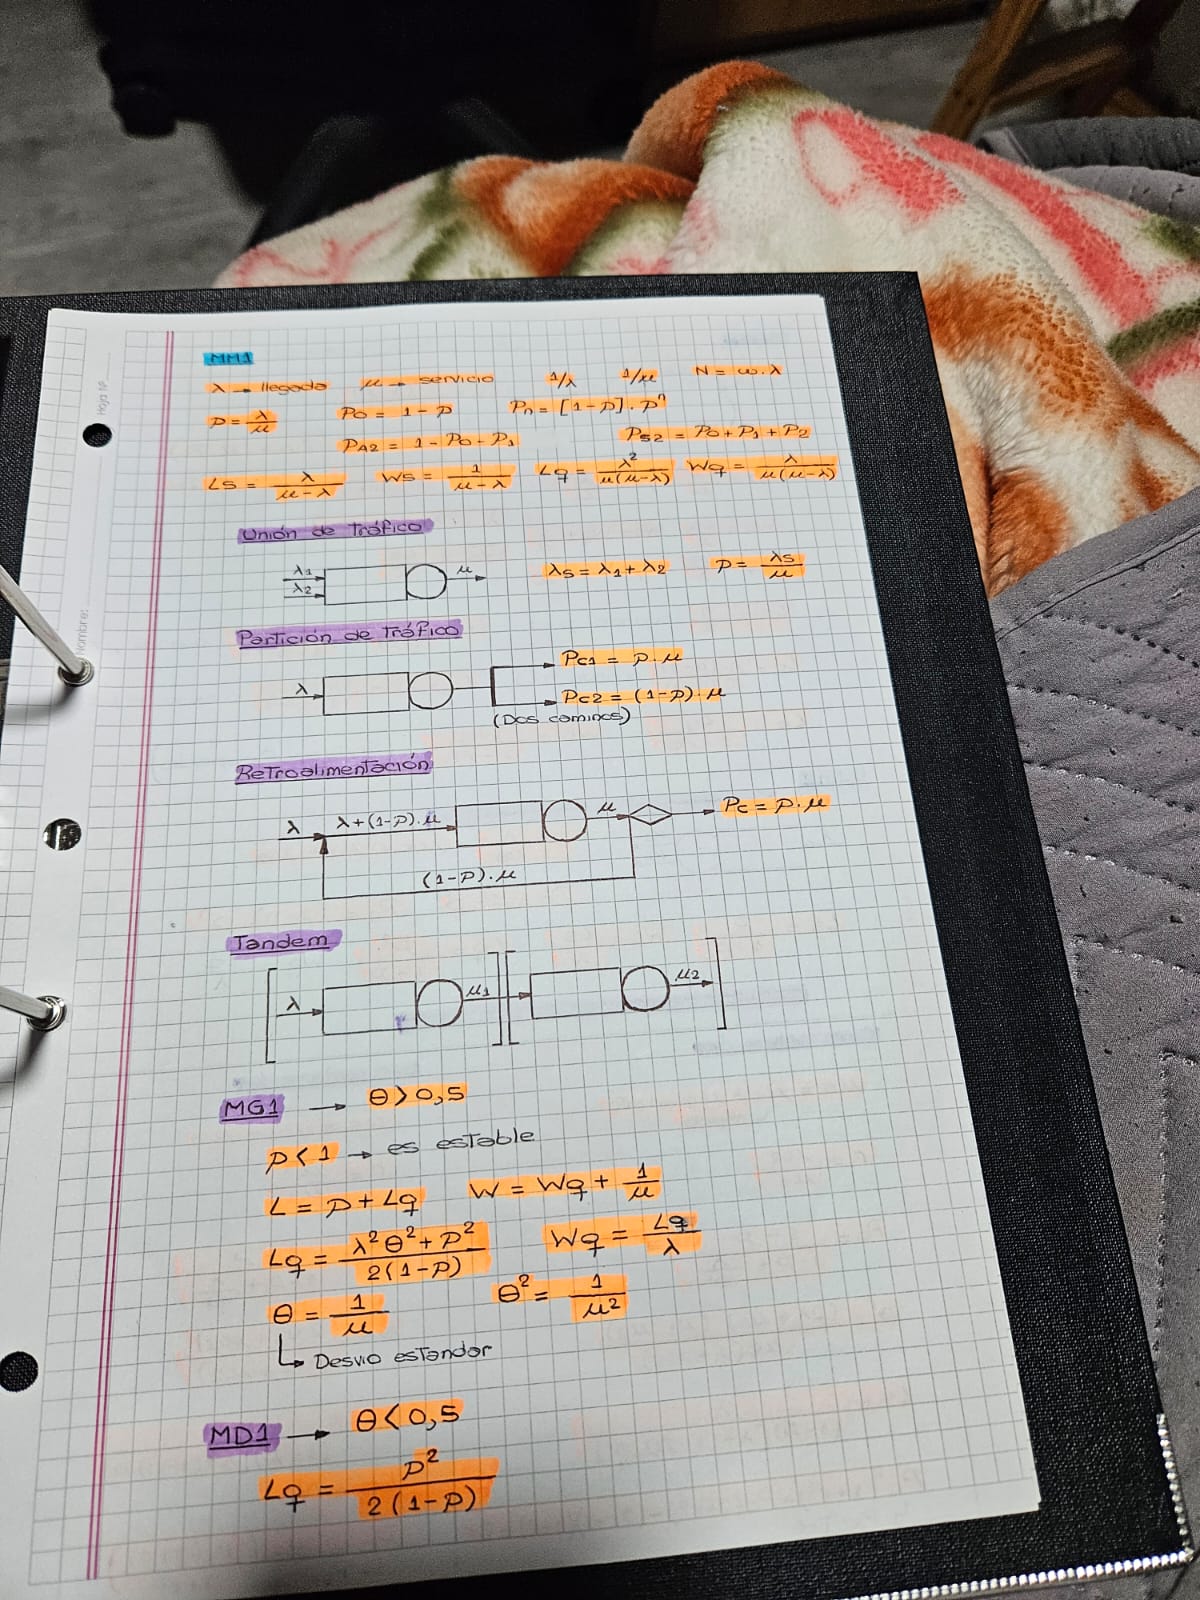 MM1
λ → llegada μ → servicio 1/λ 1/μ N = ω.λ
P = λ/μ P0 = 1 - P Pn = [1-P] . P^n
PA2 = 1 - P0 - P1 PS2 = P0 + P1 + P2
LS = λ/(μ-λ) WS = 1/(μ-λ) Lq = λ²/(μ(μ-λ)) Wq = λ/(μ(μ-λ))
Unión de Tráfico
λ1 λ2 μ λS = λ1 + λ2 P = λS/μ
Partición de Tráfico
λ PC1 = P . μ
PC2 = (1-P) . μ
(Dos caminos)
Retroalimentación
λ λ+(1-P).μ μ PC = P . μ
(1-P).μ
Tandem
λ μ1 μ2
MG1 → θ > 0,5
P < 1 → es estable
L = P + Lq W = Wq + 1/μ
Lq = (λ²θ² + P²)/(2(1-P)) Wq = Lq/λ
θ = 1/μ θ² = 1/μ²
↳ Desvio estandar
MD1 → θ < 0,5
Lq = P²/(2(1-P))
Hoja Nº
Nombre: